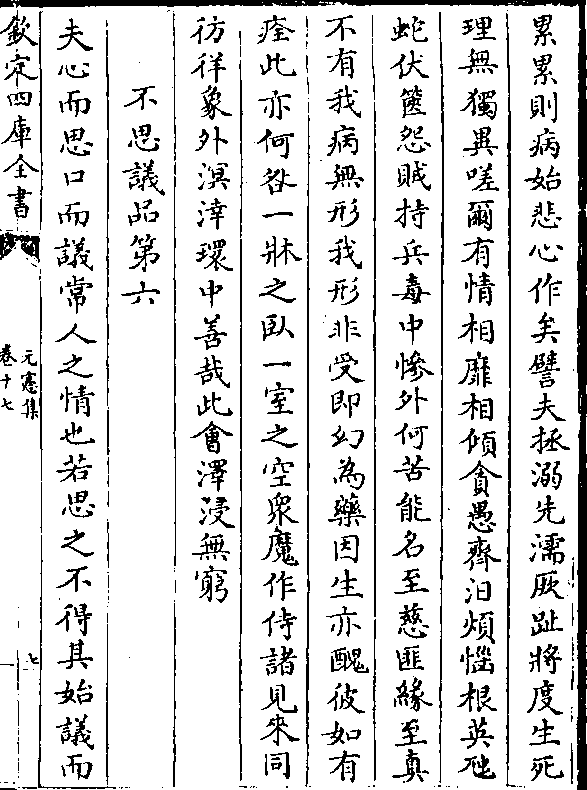 累累則病始悲心作矣譬夫拯溺先濡厥趾將度生死
理無獨異嗟爾有情相靡相傾貪愚齊汩煩惱根英虺
蛇伏篋怨賊持兵毒中慘外何苦能名至慈匪緣至真
不有我病無形我形非受即幻為藥因生亦醜彼如有
痊此亦何咎一牀之臥一室之空衆魔作侍諸見來同
彷徉象外溟涬環中善哉此會澤浸無窮
不思議品第六
夫心而思口而議常人之情也若思之不得其始議而
欽定四庫全書
元憲集
卷十七
七